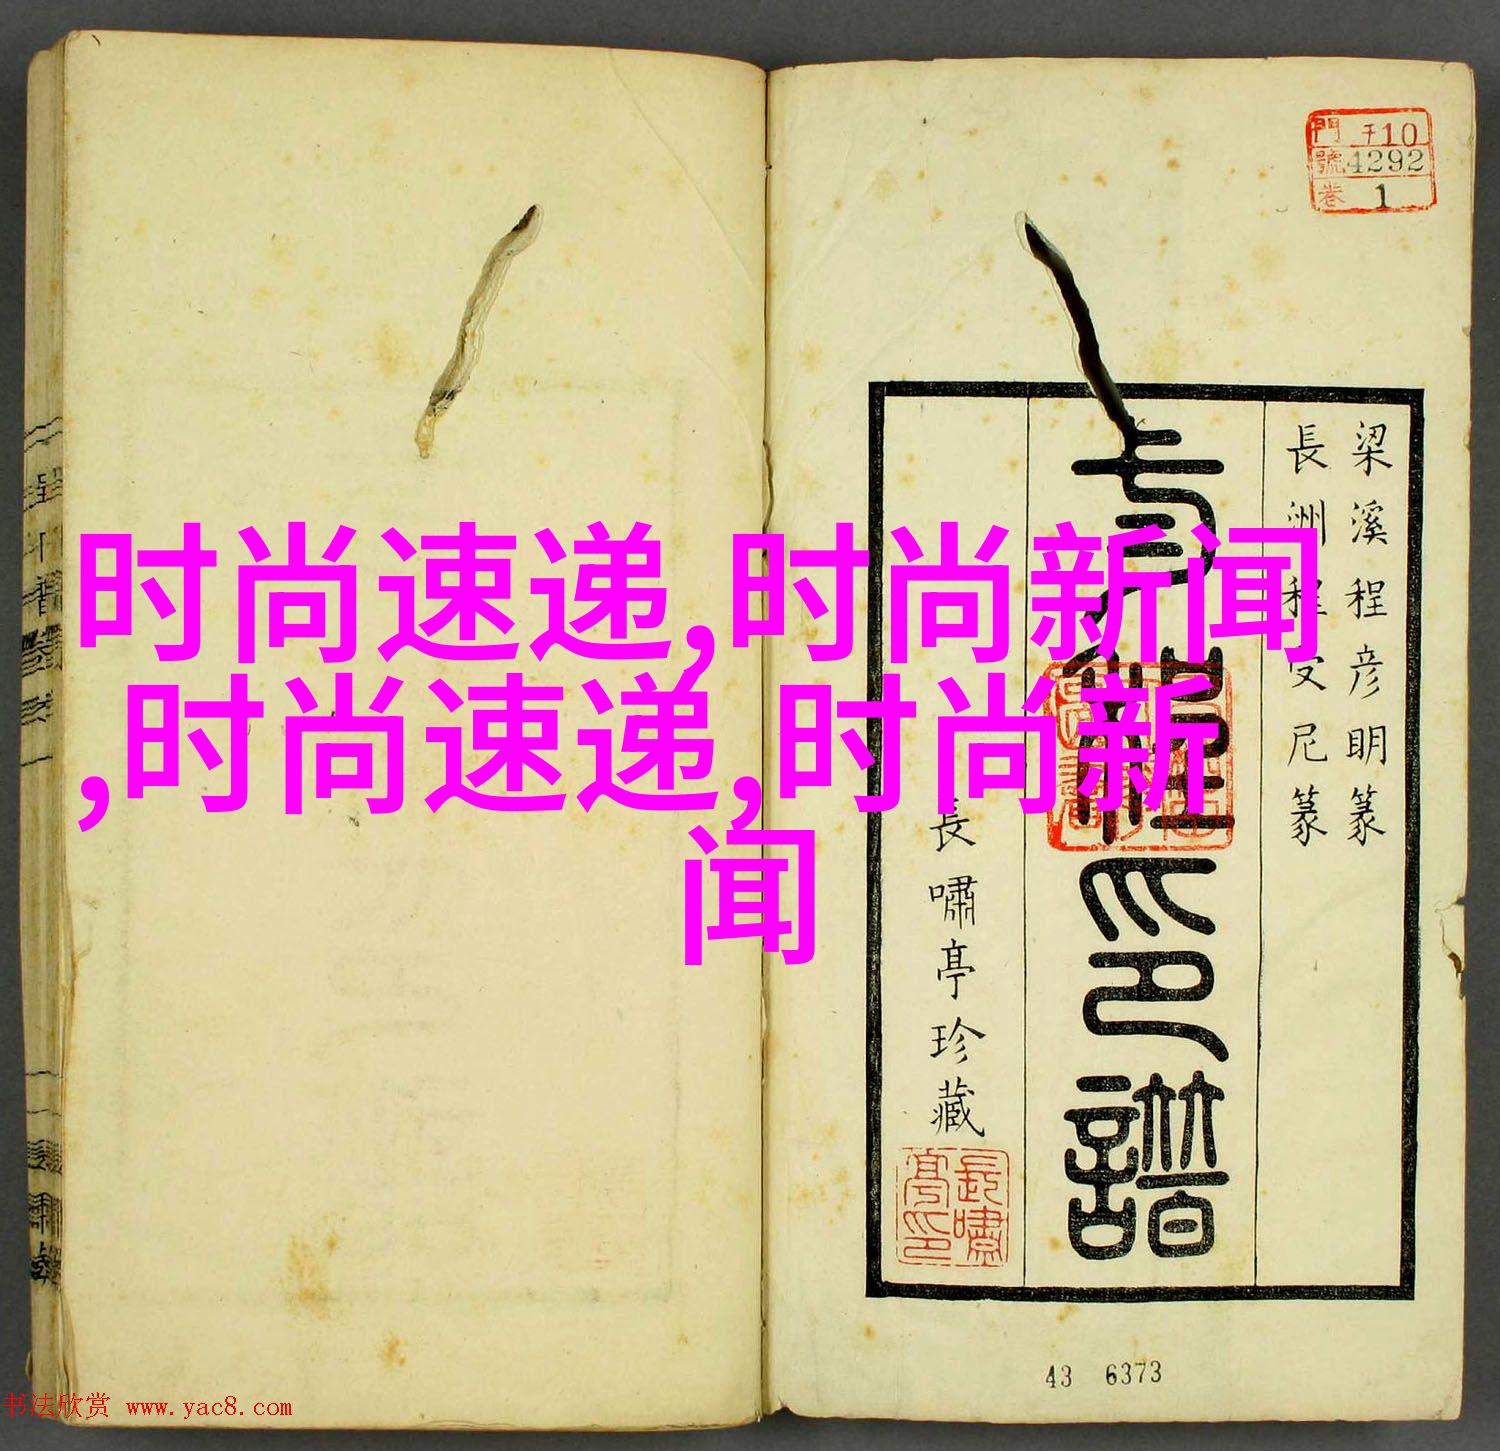 时尚速递,时尚新闻
,时尚速递,时尚新
闻
門 子10
號 4292
卷 1
梁溪程彦明篆
長洲程受尼篆
印譜
長嘯亭珍藏
長嘯亭印
43 6373
书法欣赏 www.yac8.com